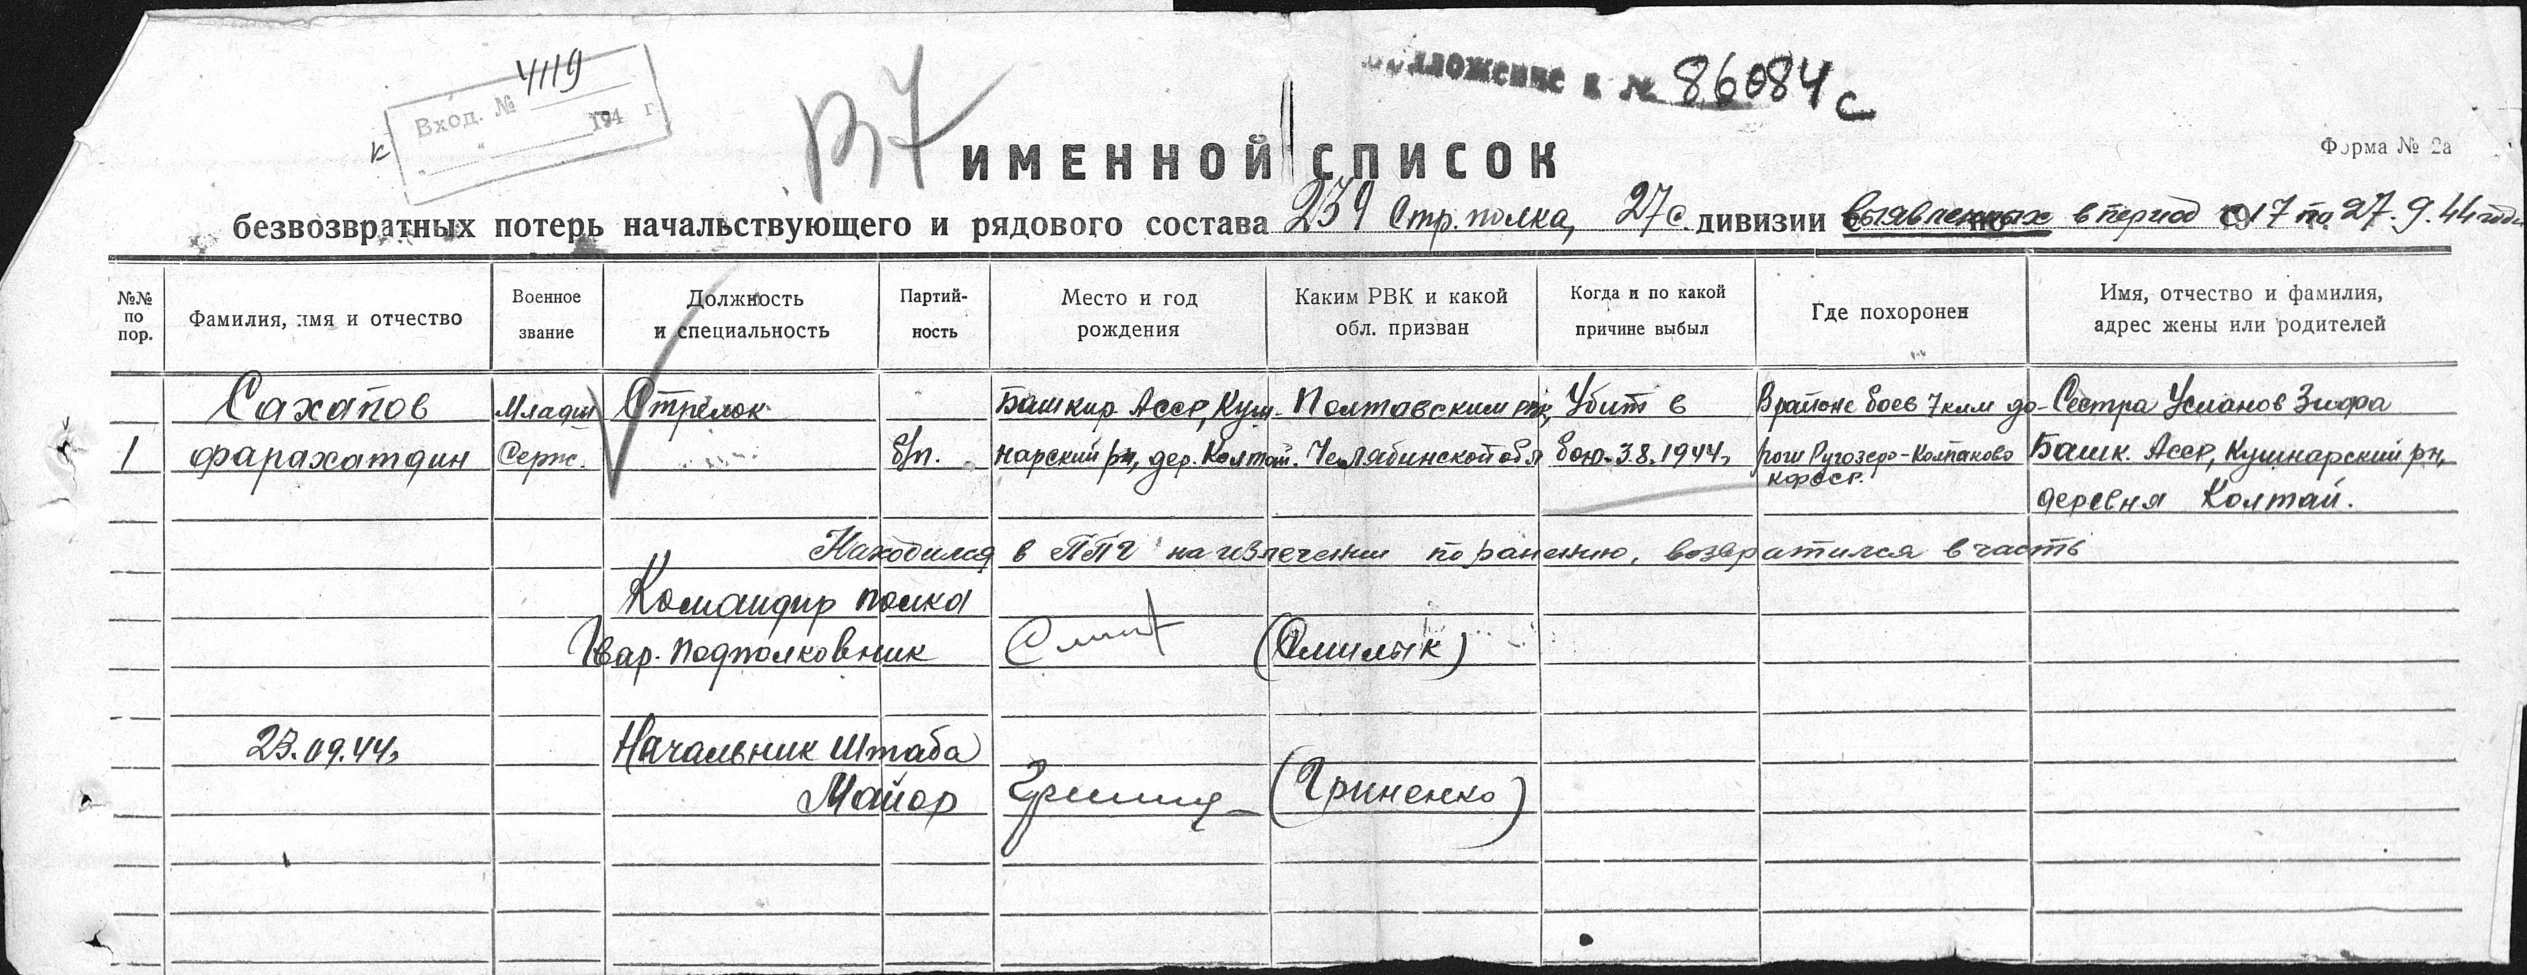 4119
Вход. №
194 г.
к
Приложение к № 86084с
Форма № 2а
ИМЕННОЙ СПИСОК
безвозвратных потерь начальствующего и рядового состава 239 Стр. полка, 27 с. дивизии выявленных в период с 17 по 27.9.44 года
№№ по пор.
Фамилия, имя и отчество
Военное звание
Должность и специальность
Партий-ность
Место и год рождения
Каким РВК и какой обл. призван
Когда и по какой причине выбыл
Где похоронен
Имя, отчество и фамилия, адрес жены или родителей
1
Сахапов
Фарахатдин
Младш
Серж.
Стрелок
б/п.
Башкир. Асср, Куш-
нарский рн, дер. Колтай.
Полтавским рвк,
Челябинской обл
Убит в
бою. 3.8.1944г
В районе боев 7 клм до-
роги Ругозеро-Колпаково
КФССР.
Сестра Усманов Зифа
Башк. Асср, Кушнарский рн,
деревня Колтай.
Находился в ППГ на излечении по ранению, возвратился в часть
Командир полка
Гвар. Подполковник
23.09.44г
Начальник Штаба
Майор
(Гриненко)